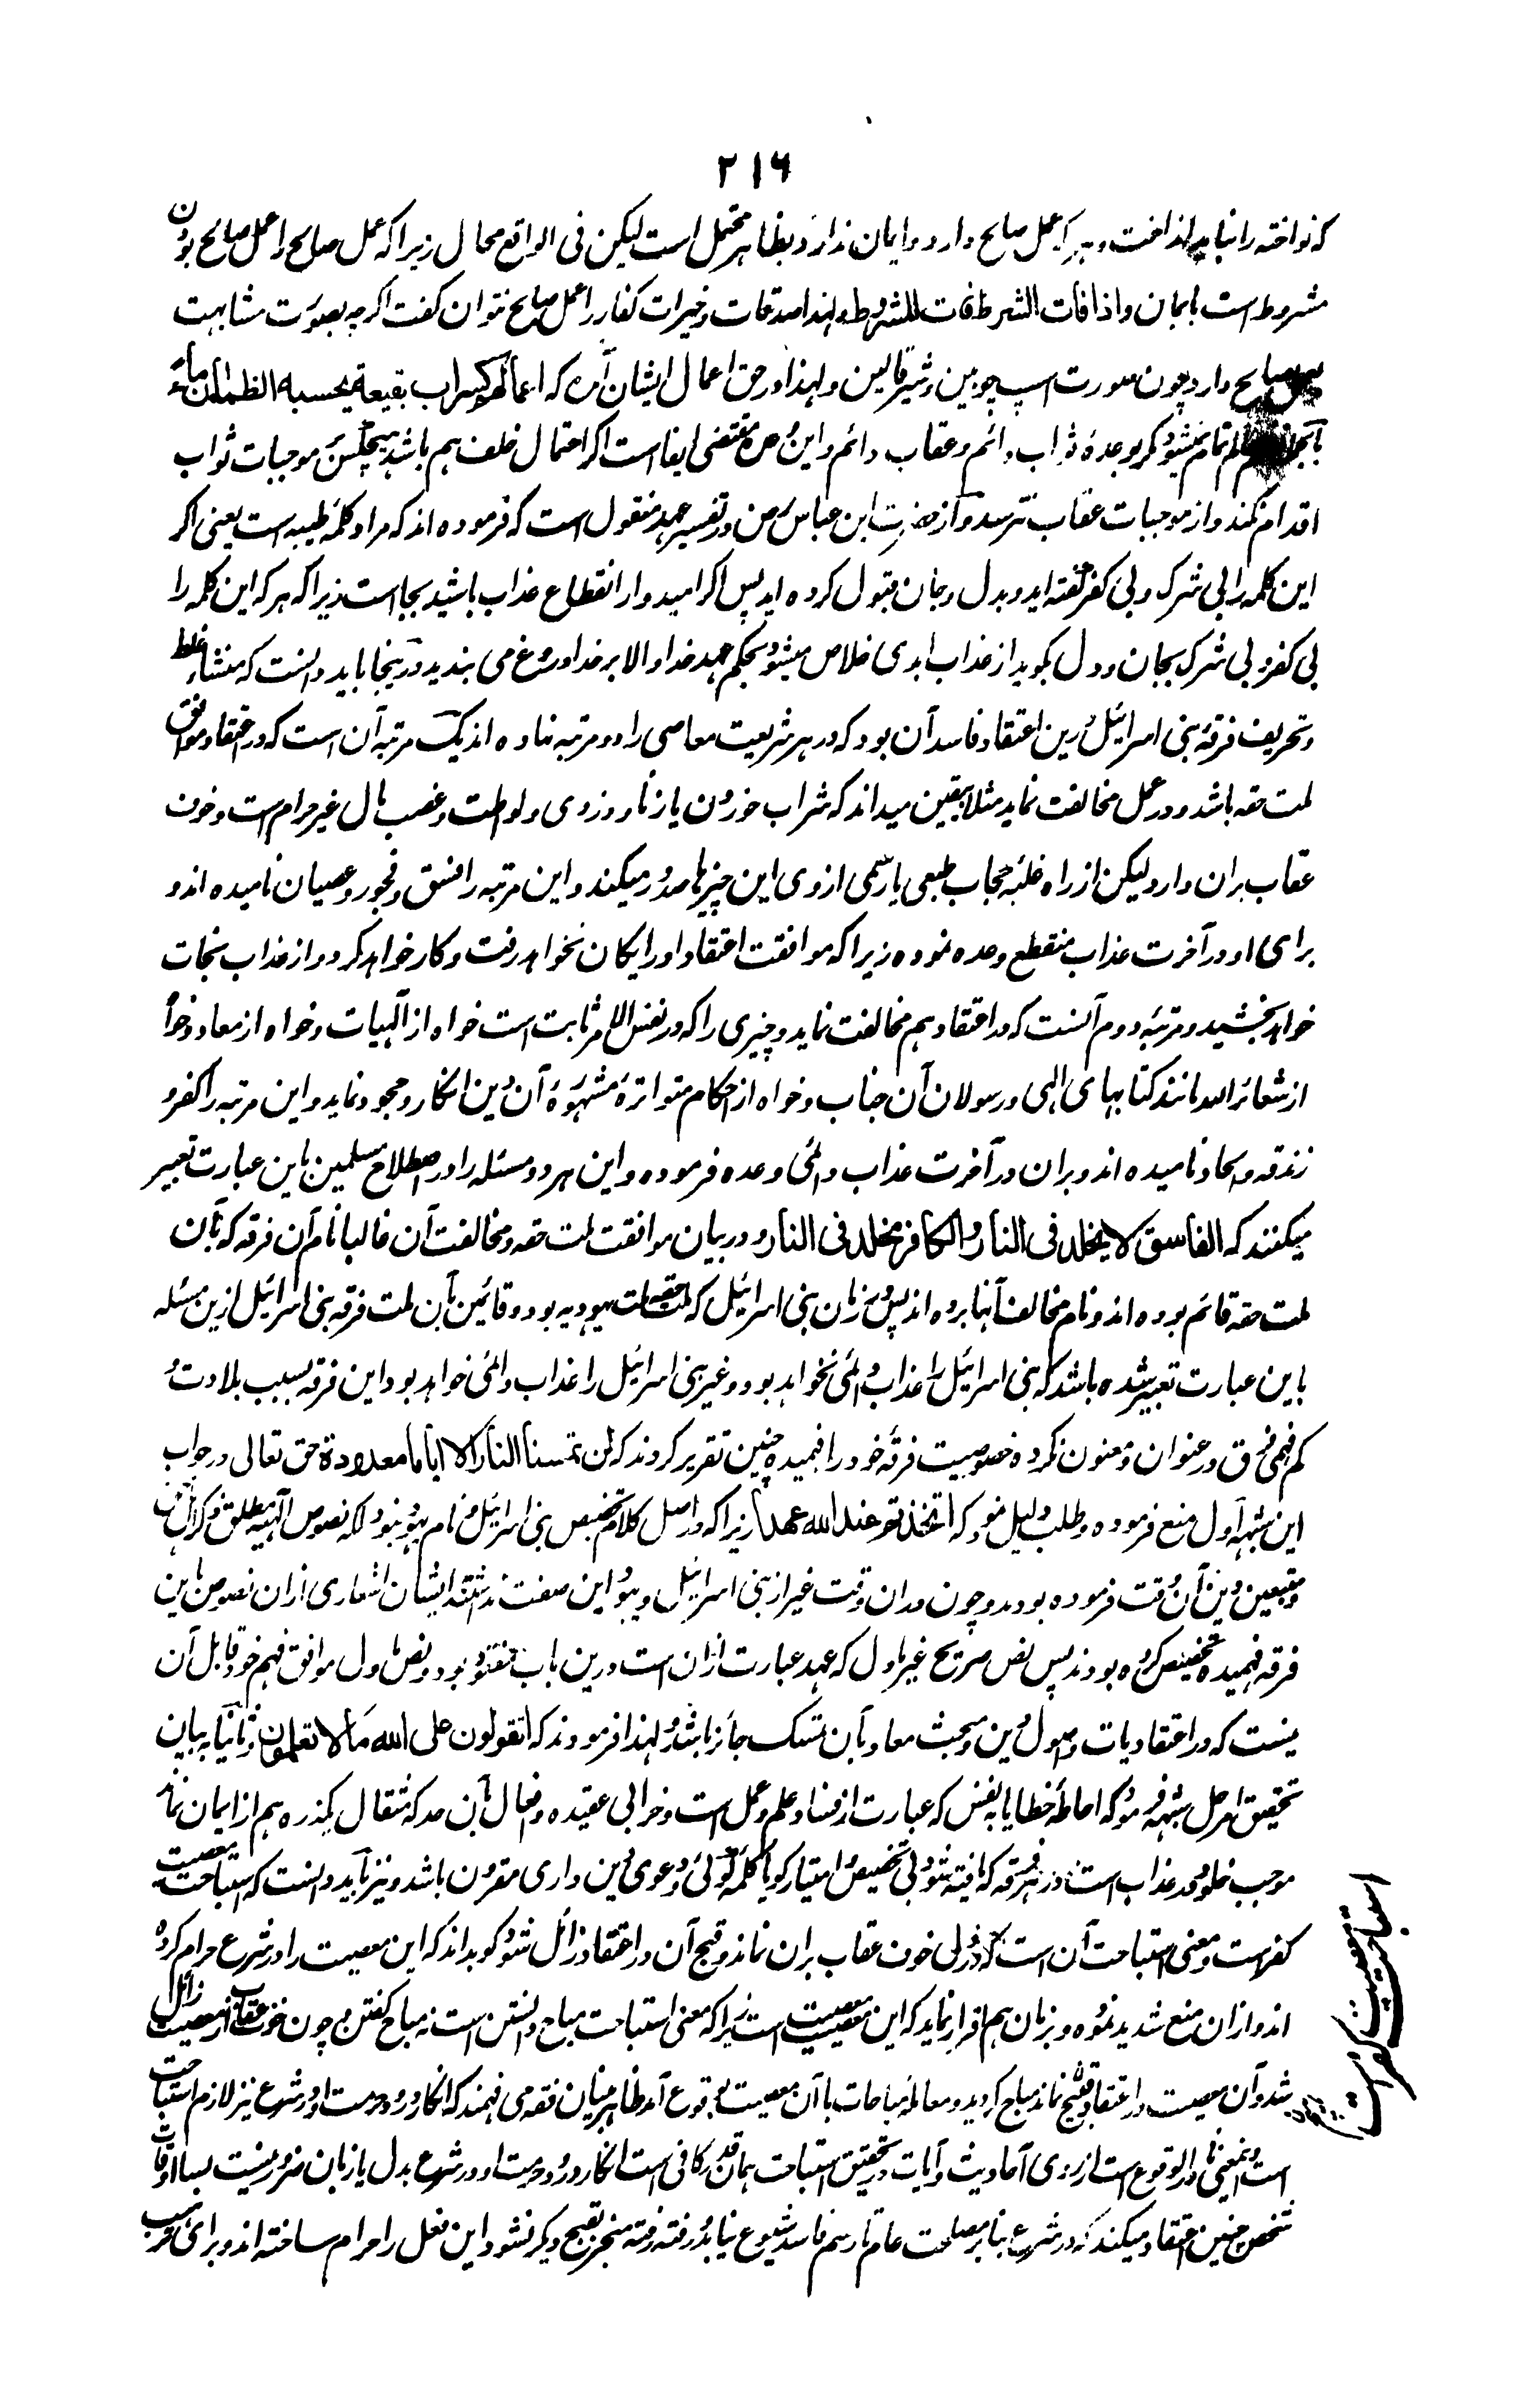 ۲۱۶
که نواخته را نباید انداخت و هر که عمل صالح دارد و ایمان ندارد بظاهر محتمل است لیکن فی الواقع محال زیرا که عمل صالح را عمل صالح بودن
مشروط است بایمان و اذا فات الشرط فات المشروط و لهذا صدقات و خیرات کفار را عمل صالح نتوان گفت اگرچه بصورت مشابهت
بعمل صالح دارد چون صورت اسپ چوبین و شیر قالین و لهذا در حق اعمال ایشان آمده که اعمالهم کسراب بقیعة یحسبه الظمآن ماء
تمام نمیشود مگر بوعده ثواب دائم و عقاب دائم و این وعده مقتضی ایفا است اگر احتمال خلف هم باشد هیچکس موجبات ثواب
اقدام نکند و از موجبات عقاب نترسد و از حضرت ابن عباس رض در تفسیر عهد منقول است که فرموده اند که مراد کلمه طیبه است یعنی اگر
این کلمه را بی شرک و بی کفر گفته اید و بدل و جان قبول کرده اید پس اگر امیدوار انقطاع عذاب باشید بجا است زیرا که هر که این کلمه را
بی کفر و بی شرک بجان و دل بگوید از عذاب ابدی خلاص میشود بحکم عهد خدا و الا بر خدا دروغ می بندید و درینجا باید دانست که منشاء غلط
و تحریف فرقه بنی اسرائیل درین اعتقاد فاسد آن بود که در هر شریعت معاصی را دو مرتبه نهاده اند یک مرتبه آن است که در اعتقاد موافق
ملت حقه باشد و در عمل مخالفت نماید مثلا بیقین میداند که شراب خوردن یا زنا و دزدی و لواطت و غصب مال غیر حرام است و خوف
عقاب بران دارد لیکن از راه غلبه حجاب طبعی یا رسمی ازوی این چیزها صدور میکند و این مرتبه را فسق و فجور و عصیان نامیده اند و
برای او در آخرت عذاب منقطع وعده نموده زیرا که موافقت اعتقاد او رایگان نخواهد رفت و کار خواهد کرد و از عذاب نجات
خواهد بخشید و مرتبه دوم آنست که در اعتقاد هم مخالفت نماید و چیزی را که در نفس الامر ثابت است خواه از الٰهیات و خواه از معاد و خواه
از شعائر الله مانند کتابهای الهی و رسولان آن جناب و خواه از احکام متواترهٔ مشهورهٔ آن دین انکار و جحود نماید و این مرتبه را کفر و
زندقه و الحاد نامیده اند و بران در آخرت عذاب دائمی وعده فرموده و این هر دو مسئله را در اصطلاح مسلمین باین عبارت تعبیر
میکنند که الفاسق لا یخلد فی النار و الکافر مخلد فی النار و در بیان موافقت ملت حقه و مخالفت آن غالبا نام آن فرقه که بآن
ملت حقه قائم بوده اند و نام مخالف آنها برده اند پس در زمان بنی اسرائیل که ملت حقه ملت یهودیه بود و قائمین بآن ملت فرقه بنی اسرائیل ازین مسئله
باین عبارت تعبیر شده باشد که بنی اسرائیل را عذاب دائمی نخواهد بود و غیر بنی اسرائیل را عذاب دائمی خواهد بود این فرقه بسبب بلادت و
کم فهمی فرق در عنوان و معنون نکرده خصوصیت فرقهٔ خود را فهمیده چنین تقریر کردند که لن تمسنا النار الا ایاما معدودة حق تعالی در جواب
این شبهه اول منع فرموده و طلب دلیل نمود که اتخذتم عند الله عهدا زیرا که در اصل کلام تخصیص بنی اسرائیل و نام یهود نبود بلکه نصوص الٰهیه مطلق
و متبعین دین آن وقت فرموده بودند و چون دران وقت غیر از بنی اسرائیل و یهود این صفت نداشتند ایشان اشعاری ازان نصوص باین
فرقه فهمیده تخصیص کرده بودند پس نص صریح غیر ماول که عهد عبارت ازان است درین باب مفقود بود و نص ماول موافق فهم خود قابل آن
نیست که در اعتقادیات و اصول دین و مبحث معاد بآن تمسک جائز باشد و لهذا فرمودند که اتقولون علی الله ما لا تعلمون و ثانیا به بیان
تحقیق اصل شبهه فرمود که احاطهٔ خطایا به نفس که عبارت از فساد علم و عمل است و خرابی عقیده و افعال بآن حد که مثقال یکذره هم از ایمان نماند
موجب خلود در عذاب است در هر فرقه که یافته شود بی تخصیص و امتیاز گو با کلمه گوئی و دعوی دین داری مقرون باشد و نیز باید دانست که استباحت معصیت
کفر است و معنی استباحت آن است که در دل خوف عقاب بران نماند و قبح آن در اعتقاد زائل شود گو بداند که این معصیت را در شرع حرام کرده
اند و ازان منع شدید نموده و بزبان هم اقرار نماید که این معصیت است زیرا که معنی استباحت مباح دانستن است نه مباح گفتن و چون خوف عقاب از معصیت زائل
شد و آن معصیت در اعتقاد قبیح نماند مباح گردید و معامله مباحات با آن معصیت بوقوع آمد ظاهربینان فقه می فهمند که انکار ورود حرمت او در شرع نیز لازم استباحت
است و اینمعنی نادر الوقوع است از روی احادیث و آیات و تحقیق استباحت همان قدر کافی است انکار ورود حرمت او در شرع بدل یا زبان ضرور نیست بسا اوقات
شخصی چنین اعتقاد میکند که در شرع بنا بر مصلحت عام تا رسم فاسد شیوع نیابد و رفته رفته منجر بقبح دیگر نشود این فعل را حرام ساخته اند و برای
استباحت معصیت کفر است